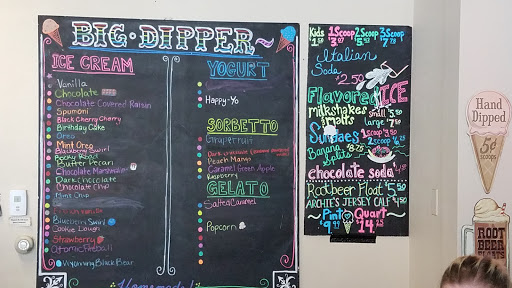 BIG·DIPPER~
ICE CREAM
Vanilla
Chocolate
Chocolate Covered Raisin
Spumoni
Black Cherry Cherry
Birthday Cake
Oreo
Mint Oreo
Blackberry Swirl
Rocky Road
Butter Pecan
Chocolate Marshmallow
Dark Chocolate
Chocolate Chip
Mint Chip
Blueberry Swirl
Cookie Dough
Strawberry
Atomic Fireball
Wyoming Black Bear
YOGURT
Happy-Yo
SORBETTO
Peach Mango
Caramel Green Apple
Raspberry
GELATO
Salted Caramel
Popcorn
Homemade!
Kids 1 Scoop 2 Scoop 3 Scoop
Italian
Soda
2.50
Flavored ICE
Milkshakes small
& malts large
Sundaes 1 scoop
Banana
Splits
chocolate soda
Rootbeer Float
ARCHIE'S JERSEY CALF
Pint Quart
Hand
Dipped
5¢
scoops
ROOT
BEER
FLOATS